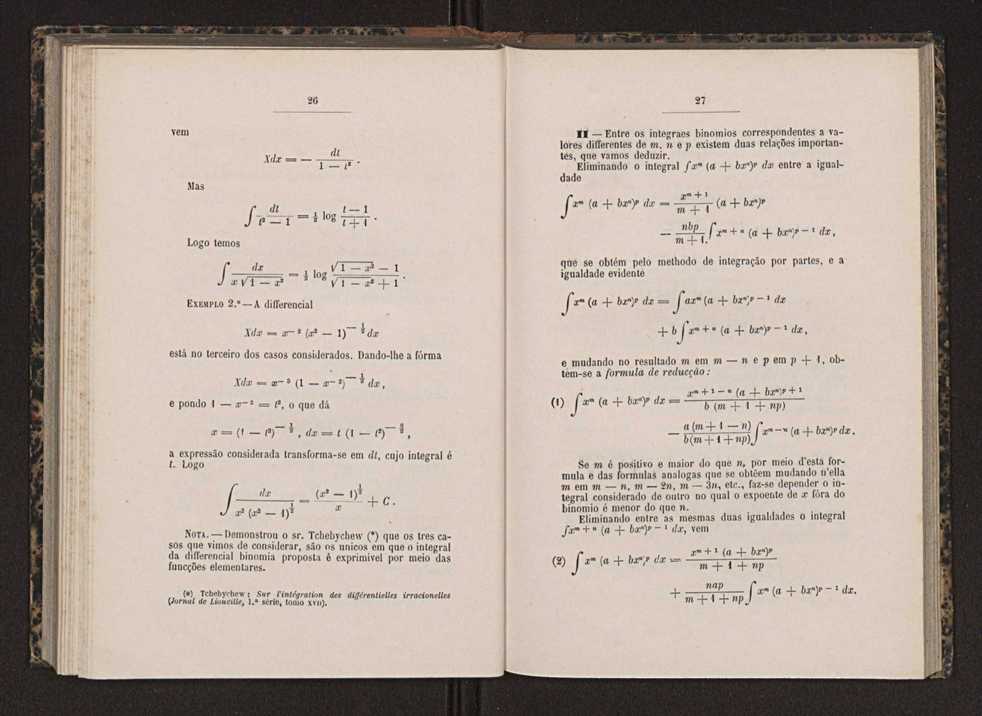 26
vem
Xdx = — dt / 1 — t² .
Mas
∫ dt / t² — 1 = ½ log t — 1 / t + 1 .
Logo temos
∫ dx / x √1 — x² = ½ log √1 — x² — 1 / √1 — x² + 1 .
EXEMPLO 2.º — A differencial
Xdx = x^{— 2} (x² — 1)^{— 1/2} dx
está no terceiro dos casos considerados. Dando-lhe a fórma
Xdx = x^{— 3} (1 — x^{— 2})^{— 1/2} dx ,
e pondo 1 — x^{— 2} = t², o que dá
x = (1 — t²)^{— 1/2} , dx = t (1 — t²)^{— 3/2} ,
a expressão considerada transforma-se em dt, cujo integral é
t. Logo
∫ dx / x² (x² — 1)^{1/2} = (x² — 1)^{1/2} / x + C .
NOTA. — Demonstrou o sr. Tchebychew (*) que os tres ca-
sos que vimos de considerar, são os unicos em que o integral
da differencial binomia proposta é exprimivel por meio das
funcções elementares.
(*) Tchebychew : Sur l'intégration des différentielles irracionelles
(Jornal de Liouville, 1.ª série, tomo XVII).
27
II — Entre os integraes binomios correspondentes a va-
lores differentes de m, n e p existem duas relações importan-
tes, que vamos deduzir.
Eliminando o integral ∫x^m (a + bx^n)^p dx entre a igual-
dade
∫ x^m (a + bx^n)^p dx = x^{m + 1} / m + 1 (a + bx^n)^p
— nbp / m + 1. ∫ x^{m + n} (a + bx^n)^{p — 1} dx ,
que se obtém pelo methodo de integração por partes, e a
igualdade evidente
∫ x^m (a + bx^n)^p dx = ∫ ax^m (a + bx^n)^{p — 1} dx
+ b ∫ x^{m + n} (a + bx^n)^{p — 1} dx ,
e mudando no resultado m em m — n e p em p + 1, ob-
tem-se a formula de reducção :
(1) ∫ x^m (a + bx^n)^p dx = x^{m + 1 — n} (a + bx^n)^{p + 1} / b (m + 1 + np)
— a (m + 1 — n) / b(m + 1 + np) ∫ x^{m — n} (a + bx^n)^p dx .
Se m é positivo e maior do que n, por meio d'esta for-
mula e das formulas analogas que se obtêem mudando n'ella
m em m — n, m — 2n, m — 3n, etc., faz-se depender o in-
tegral considerado de outro no qual o expoente de x fóra do
binomio é menor do que n.
Eliminando entre as mesmas duas igualdades o integral
∫x^{m + n} (a + bx^n)^{p — 1} dx, vem
(2) ∫ x^m (a + bx^n)^p dx = x^{m + 1} (a + bx^n)^p / m + 1 + np
+ nap / m + 1 + np ∫ x^m (a + bx^n)^{p — 1} dx.